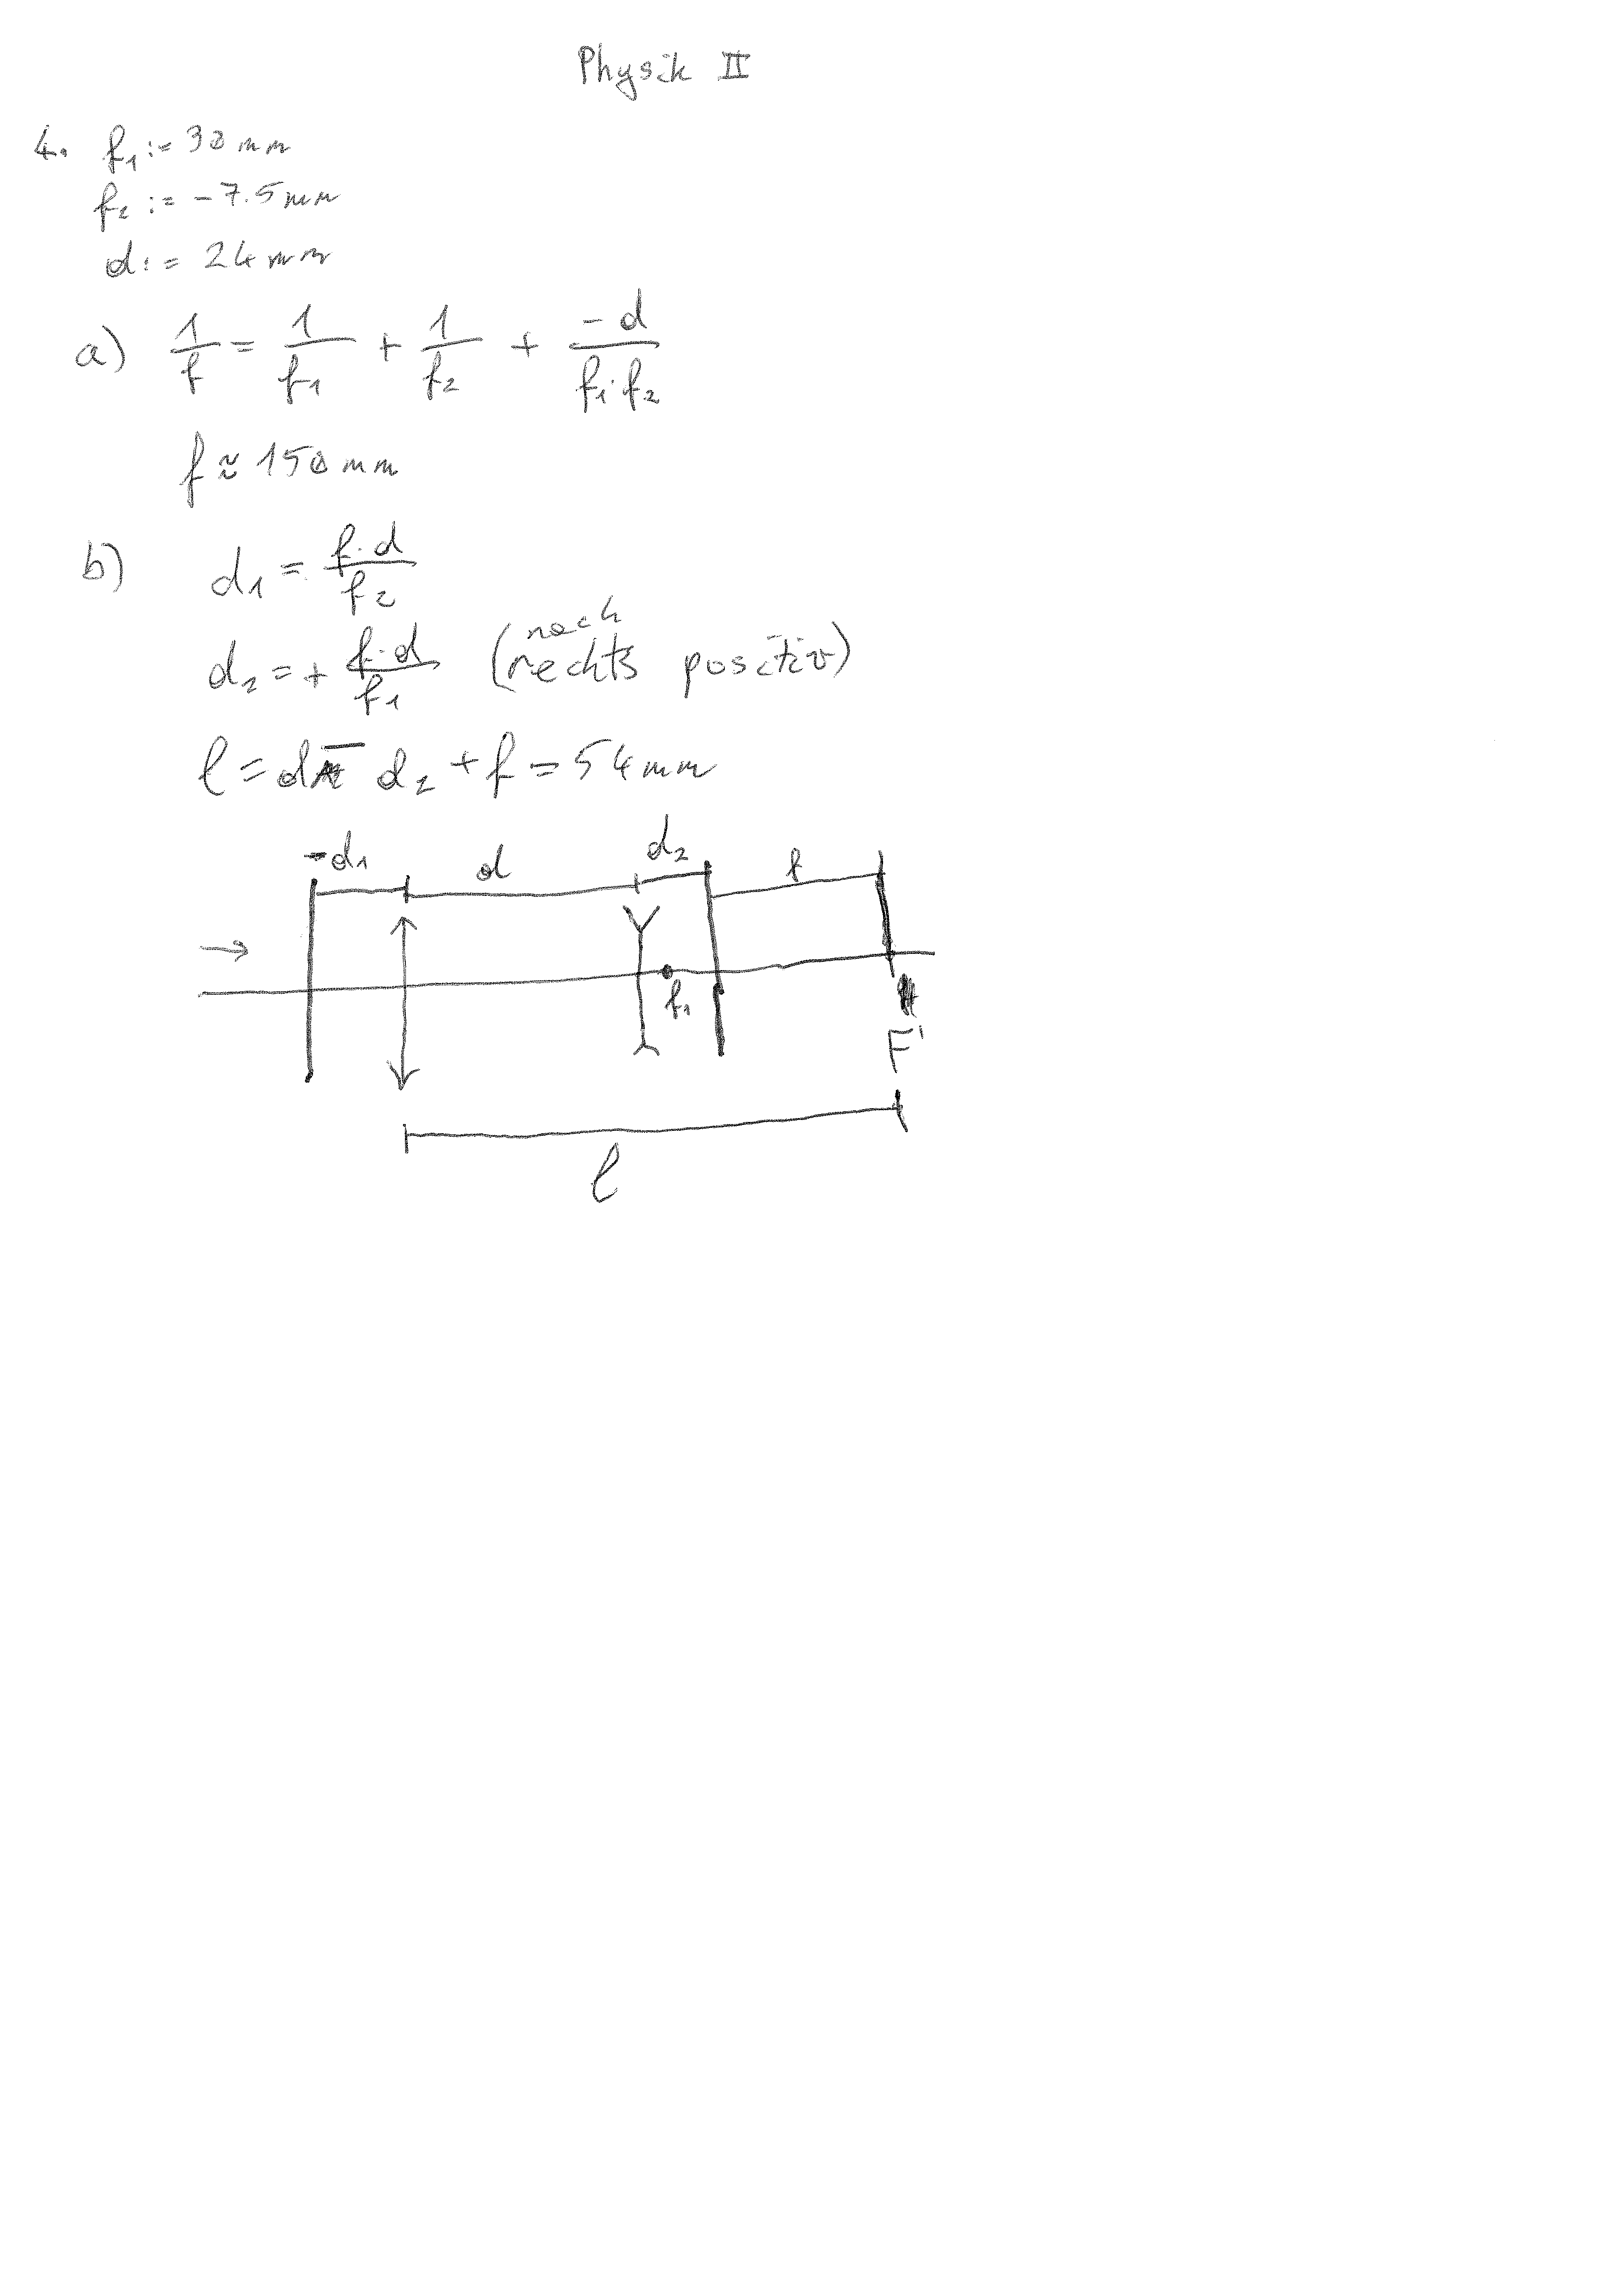 Physik II
4. f₁ := 30 mm
f₂ := -7.5 mm
d := 24 mm
a) 1/f = 1/f₁ + 1/f₂ + -d/(f₁·f₂)
f ≈ 150 mm
b) d₁ = f·d/f₂
d₂ = + f·d/f₁ (nach rechts positiv)
ℓ = d - d₂ + f = 54 mm
-d₁ d d₂ f
f₁
F'
ℓ